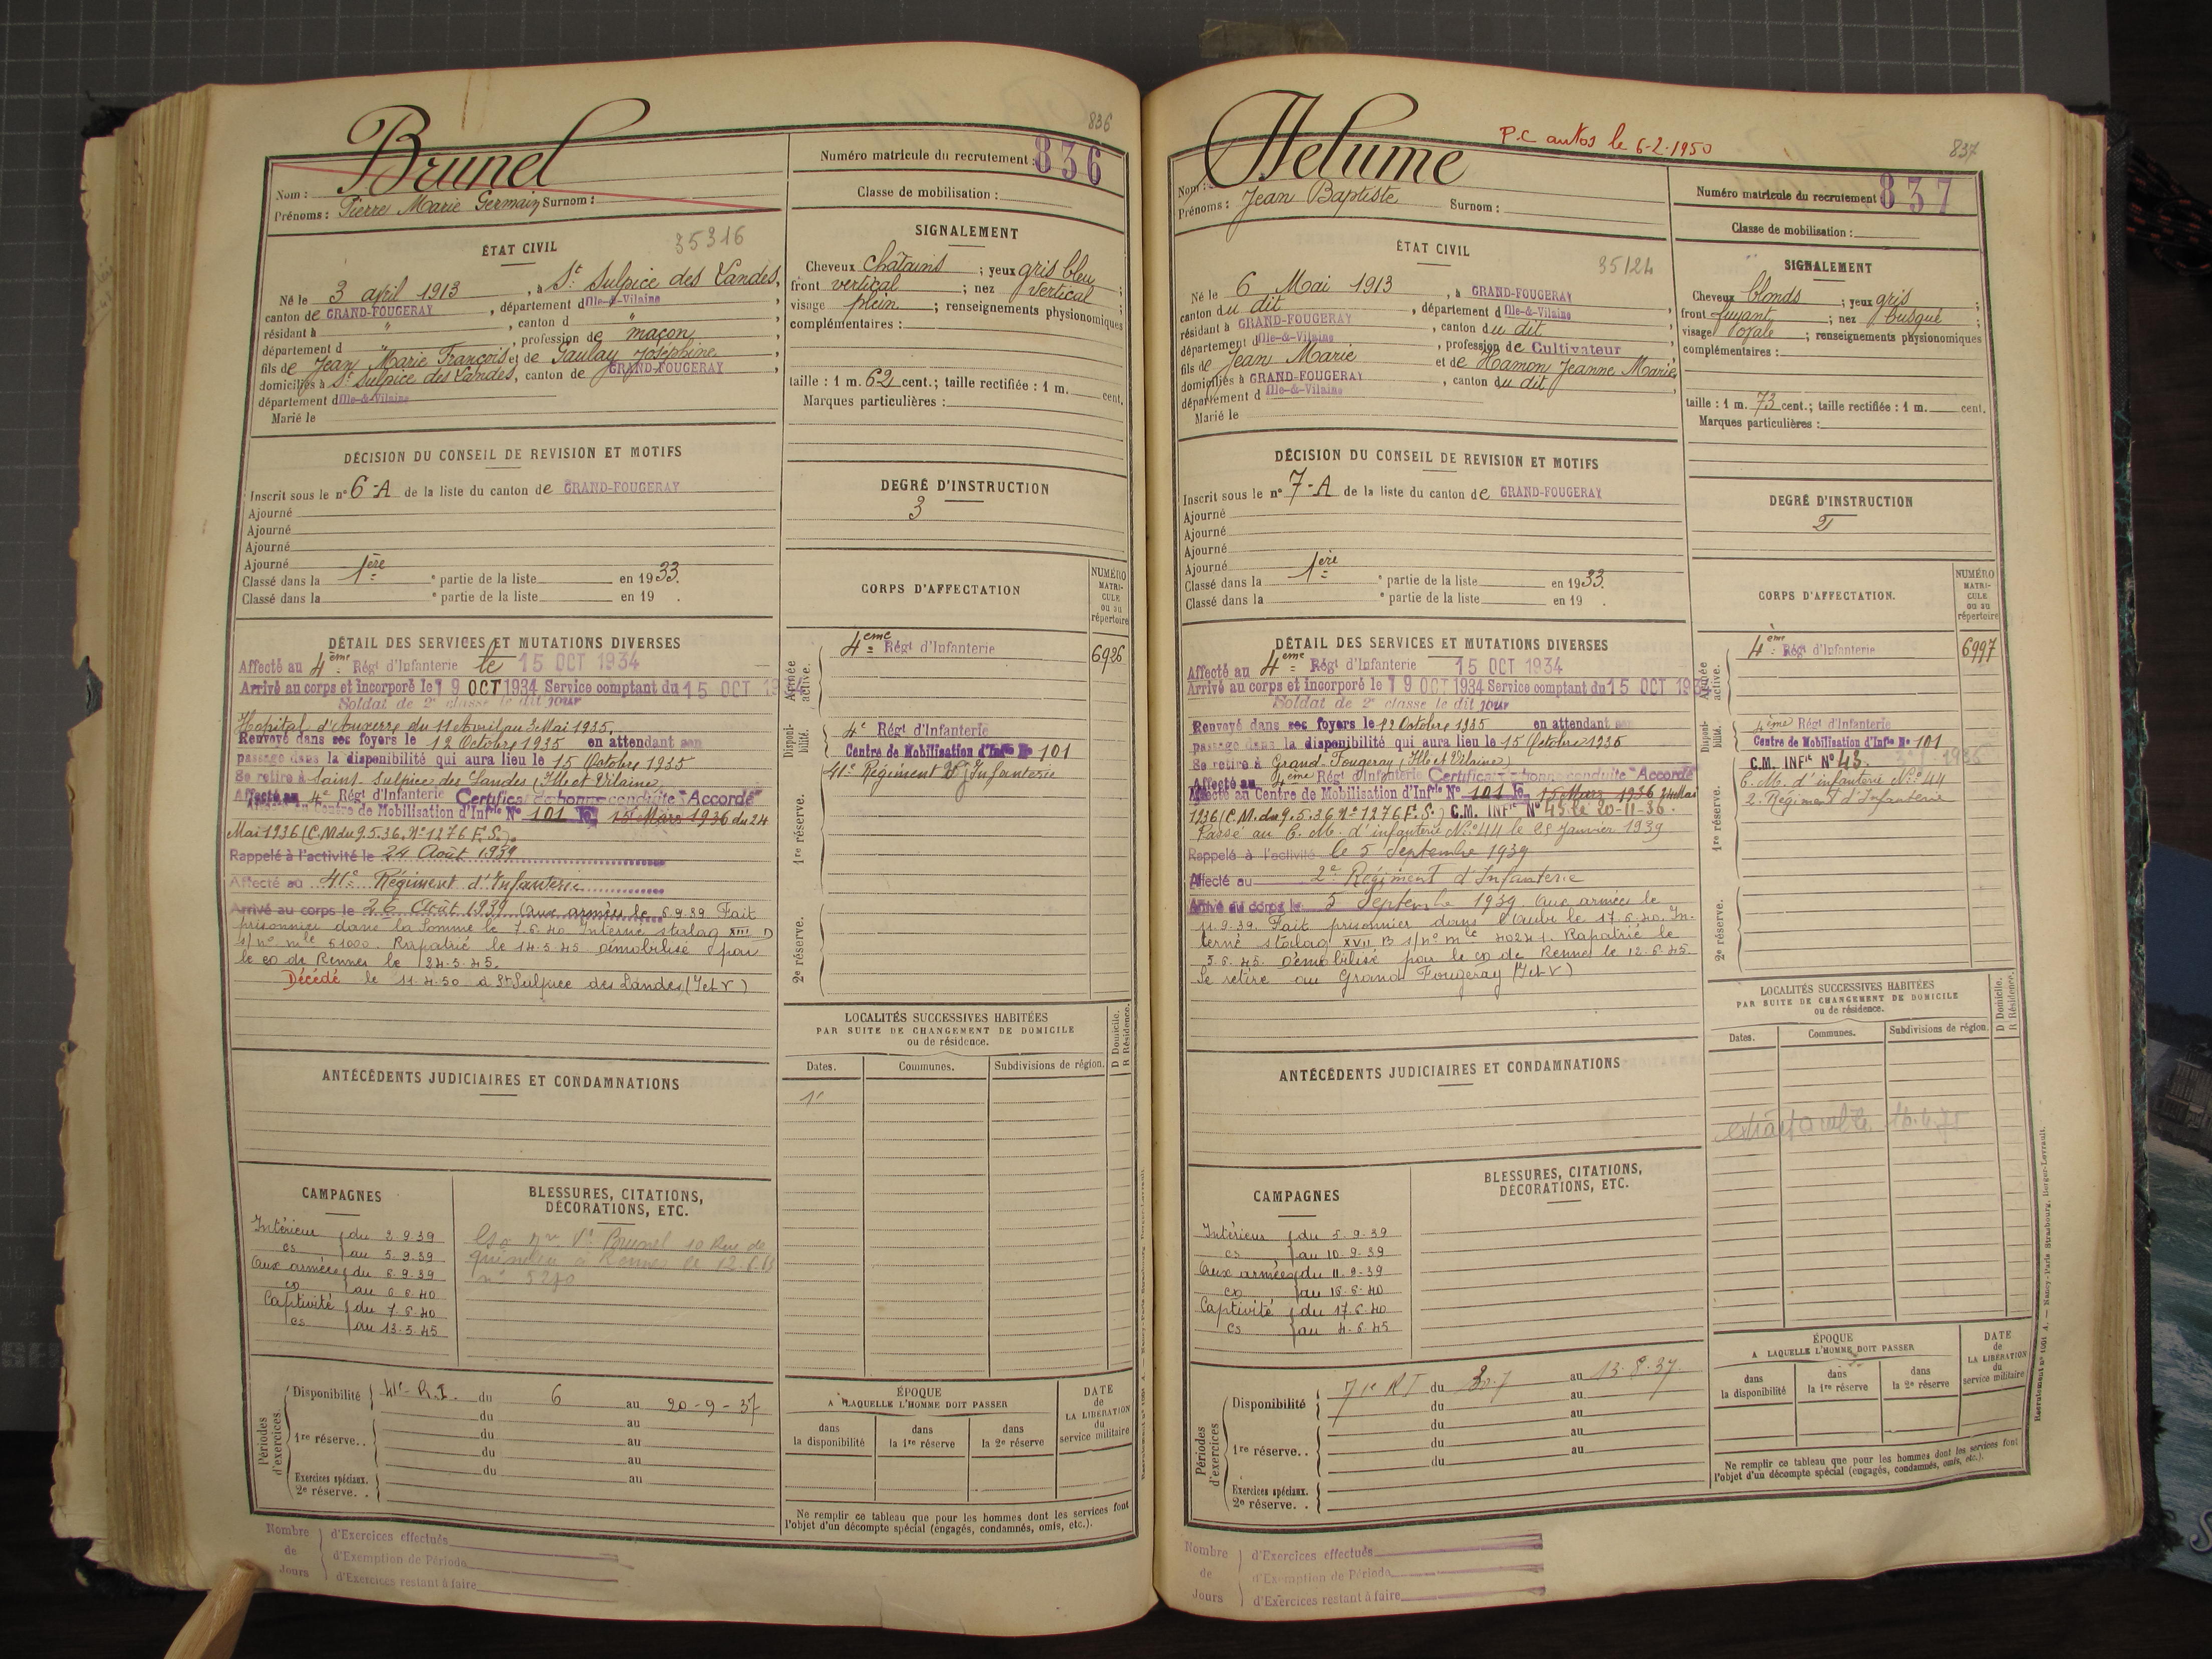 836
Brunel
Nom :
Prénoms : Pierre Marie Germain Surnom :
Numéro matricule du recrutement : 836
Classe de mobilisation :
ÉTAT CIVIL
35316
Né le 3 avril 1913, à St Sulpice des Landes,
canton de GRAND-FOUGERAY, département d Ille-&-Vilaine,
résidant à " , canton d "
département d " , profession de maçon,
fils de Jean Marie François et de Gaulay Joséphine,
domiciliés à St Sulpice des Landes, canton de GRAND-FOUGERAY,
département d Ille-&-Vilaine
Marié le
SIGNALEMENT
Cheveux châtains ; yeux gris bleu ;
front vertical ; nez vertical ;
visage plein ; renseignements physionomiques
complémentaires :
taille : 1 m. 62 cent.; taille rectifiée : 1 m. cent.
Marques particulières :
DÉCISION DU CONSEIL DE REVISION ET MOTIFS
Inscrit sous le n° 6-A de la liste du canton de GRAND-FOUGERAY
Ajourné
Ajourné
Ajourné
Ajourné
Classé dans la 1ère e partie de la liste en 1933.
Classé dans la e partie de la liste en 19 .
DEGRÉ D'INSTRUCTION
3
DÉTAIL DES SERVICES ET MUTATIONS DIVERSES
Affecté au 4ème Régt d'Infanterie le 15 OCT 1934
Arrivé au corps et incorporé le 19 OCT 1934 Service comptant du 15 OCT 1934
Soldat de 2e classe le dit jour
Hopital d'Auxerre du 11 Avril au 3 Mai 1935.
Renvoyé dans ses foyers le 12 Octobre 1935 en attendant son
passage dans la disponibilité qui aura lieu le 15 Octobre 1935
Se retire à Saint Sulpice des Landes (Ille et Vilaine)
Affecté au 4e Régt d'Infanterie Certificat de bonne conduite "Accordé"
Affecté au Centre de Mobilisation d'Infrie N° 101 le 15 Mars 1936 du 24
Mai 1936 (C.M du 9.5.36. N° 1276 F.S.)
Rappelé à l'activité le 24 Août 1939
Affecté au 41e Régiment d'Infanterie
Arrivé au corps le 26 Août 1939 Aux armées le 6.9.39 Fait
prisonnier dans la Somme le 7.6.40 Interné stalag XIII D
s/ n° mle 61000. Rapatrié le 14.5.45 Démobilisé par
le CD de Rennes le 24.5.45.
Décédé le 11.4.50 à St Sulpice des Landes (I et V)
CORPS D'AFFECTATION
NUMÉRO MATRICULE ou au répertoire
Armée active.
4ème Régt d'Infanterie
6926
Disponibilité.
4e Régt d'Infanterie
Centre de Mobilisation d'Infie N° 101
41e Régiment d'Infanterie
1re réserve.
2e réserve.
LOCALITÉS SUCCESSIVES HABITÉES
PAR SUITE DE CHANGEMENT DE DOMICILE
ou de résidence.
D Domicile.
R Résidence.
Dates. Communes. Subdivisions de région.
ANTÉCÉDENTS JUDICIAIRES ET CONDAMNATIONS
CAMPAGNES
Intérieur du 2.9.39
cs au 5.9.39
Aux armées du 6.9.39
au 6.6.40
Captivité du 7.6.40
cs au 13.5.45
BLESSURES, CITATIONS,
DÉCORATIONS, ETC.
Brunel 10 Rue de
à Rennes le
Périodes d'exercices.
Disponibilité 41e R.I. du 6 au 20-9-37
du au
1re réserve. . du au
du au
Exercices spéciaux. du au
2e réserve. .
ÉPOQUE
A LAQUELLE L'HOMME DOIT PASSER
dans la disponibilité dans la 1re réserve dans la 2e réserve
DATE de LA LIBÉRATION du service militaire
Ne remplir ce tableau que pour les hommes dont les services font
l'objet d'un décompte spécial (engagés, condamnés, omis, etc.).
Nombre de Jours
d'Exercices effectués
d'Exemption de Période
d'Exercices restant à faire
837
Helume
P.C autos le 6-2-1950
Nom :
Prénoms : Jean Baptiste Surnom :
Numéro matricule du recrutement 837
Classe de mobilisation :
ÉTAT CIVIL
35124
Né le 6 Mai 1913, à GRAND-FOUGERAY
canton du dit, département d Ille-&-Vilaine
résidant à GRAND-FOUGERAY, canton du dit
département d Ille-&-Vilaine, profession de Cultivateur
fils de Jean Marie et de Hamon Jeanne Marie,
domiciliés à GRAND-FOUGERAY, canton du dit,
département d Ille-&-Vilaine
Marié le
SIGNALEMENT
Cheveux blonds ; yeux gris ;
front fuyant ; nez busqué ;
visage ovale ; renseignements physionomiques
complémentaires :
taille : 1 m. 73 cent.; taille rectifiée : 1 m. cent.
Marques particulières :
DÉCISION DU CONSEIL DE REVISION ET MOTIFS
Inscrit sous le n° 7-A de la liste du canton de GRAND-FOUGERAY
Ajourné
Ajourné
Ajourné
Ajourné
Classé dans la 1ère e partie de la liste en 1933.
Classé dans la e partie de la liste en 19 .
DEGRÉ D'INSTRUCTION
2
DÉTAIL DES SERVICES ET MUTATIONS DIVERSES
Affecté au 4ème Régt d'Infanterie 15 OCT 1934
Arrivé au corps et incorporé le 19 OCT 1934 Service comptant du 15 OCT 1934
Soldat de 2e classe le dit jour
Renvoyé dans ses foyers le 12 Octobre 1935 en attendant son
passage dans la disponibilité qui aura lieu le 15 Octobre 1935
Se retire à Grand-Fougeray (Ille et Vilaine)
Affecté au 4ème Régt d'Infanterie Certificat de bonne conduite "Accordé"
Affecté au Centre de Mobilisation d'Infie N° 101 le 15 Mars 1936 24 Mai
1936 (C.M. du 9.5.36 N° 1276 F.S.) C.M. INFie N° 43 le 20-11-36.
Passé au C.M. d'infanterie N° 44 le 25 Janvier 1939
Rappelé à l'activité le 5 Septembre 1939
Affecté au 2e Régiment d'Infanterie
Arrivé au corps le 5 Septembre 1939 Aux armées le
11.9.39. Fait prisonnier dans l'Aube le 17.6.40. In-
terné stalag XVII B s/n° mle 40241. Rapatrié le
5.6.45. Démobilisé par le CD de Rennes le 12.6.45.
Se retire au Grand Fougeray (I et V)
CORPS D'AFFECTATION.
NUMÉRO MATRICULE ou au répertoire
Armée active.
4ème Régt d'Infanterie
6997
Disponibilité.
4ème Régt d'Infanterie
Centre de Mobilisation d'Infie N° 101
C.M. INFie N° 43.
C.M. d'infanterie N° 44
2e Régiment d'Infanterie
1re réserve.
2e réserve.
LOCALITÉS SUCCESSIVES HABITÉES
PAR SUITE DE CHANGEMENT DE DOMICILE
ou de résidence.
D Domicile.
R Résidence.
Dates. Communes. Subdivisions de région.
ANTÉCÉDENTS JUDICIAIRES ET CONDAMNATIONS
CAMPAGNES
Intérieur du 5.9.39
cs au 10.9.39
Aux armées du 11.9.39
au 16.6.40
Captivité du 17.6.40
cs au 4.6.45
BLESSURES, CITATIONS,
DÉCORATIONS, ETC.
Périodes d'exercices
Disponibilité 71e RI du 30.7 au 13.8.37.
du au
du au
1re réserve. . du au
du
Exercices spéciaux.
2e réserve. .
ÉPOQUE
A LAQUELLE L'HOMME DOIT PASSER
dans la disponibilité dans la 1re réserve dans la 2e réserve
DATE de LA LIBÉRATION du service militaire
Ne remplir ce tableau que pour les hommes dont les services font
l'objet d'un décompte spécial (engagés, condamnés, omis, etc.).
Recrutement n° 1091 A. — Nancy-Paris Strasbourg, Berger-Levrault.
Nombre de Jours
d'Exercices effectués
d'Exemption de Période
d'Exercices restant à faire